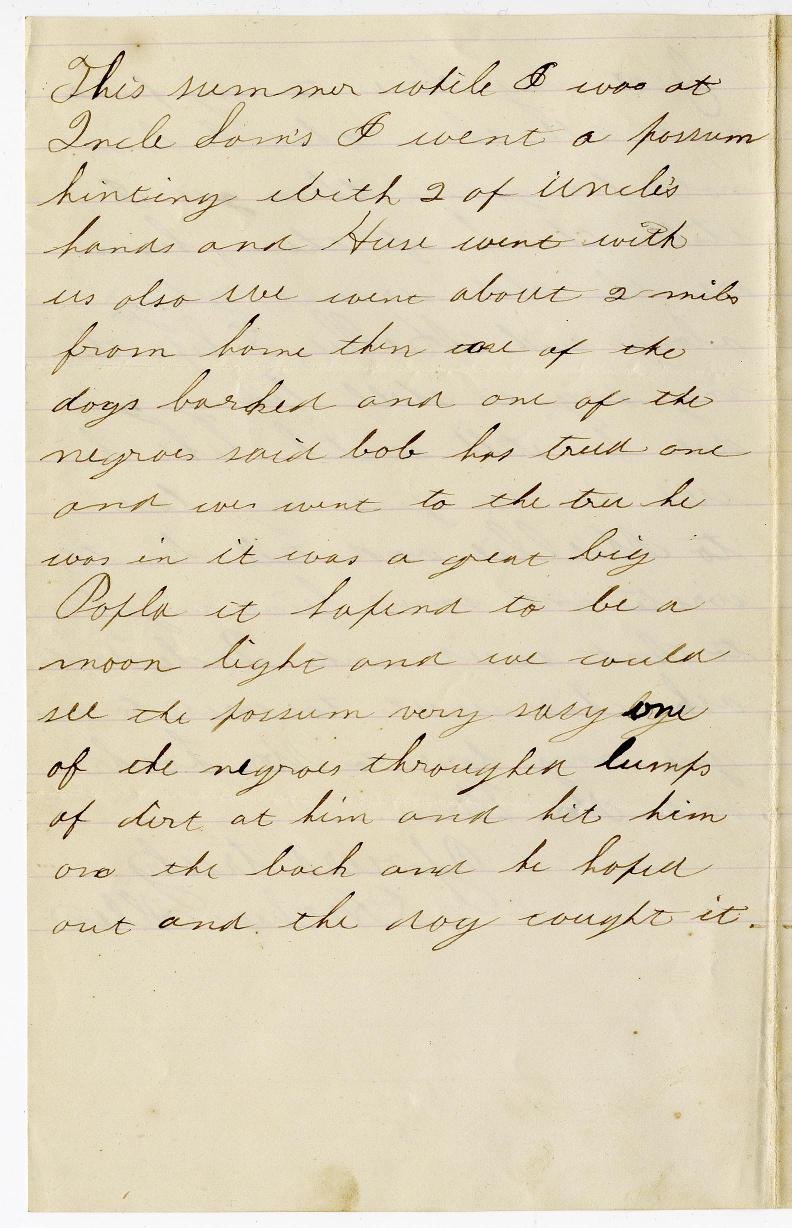 This summer while I was at
Uncle Sam's I went a possum
hinting with 2 of Uncle's
hands and Huse went with
us also We went about 2 miles
from home then one of the
dogs barked and one of the
negroes said bob has treed one
and we went to the tree he
was in it was a great big
Popla it hapend to be a
moon light and we could
see the possum very easy one
of the negroes throughed lumps
of dirt at him and hit him
on the back and he hoped
out and the dog cought it.